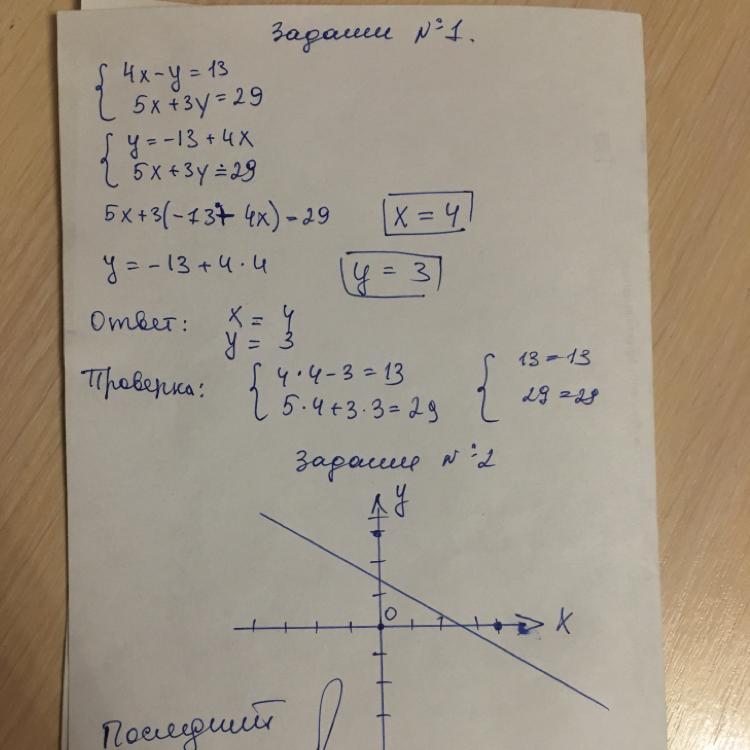 Задание №1.
4x-y=13
5x+3y=29
y=-13+4x
5x+3y=29
5x+3(-13+4x)=29 x=4
y=-13+4·4 y=3
Ответ: x=4
y=3
Проверка: 4·4-3=13 13=13
5·4+3·3=29 29=29
Задание №2
y
0
x
Последний